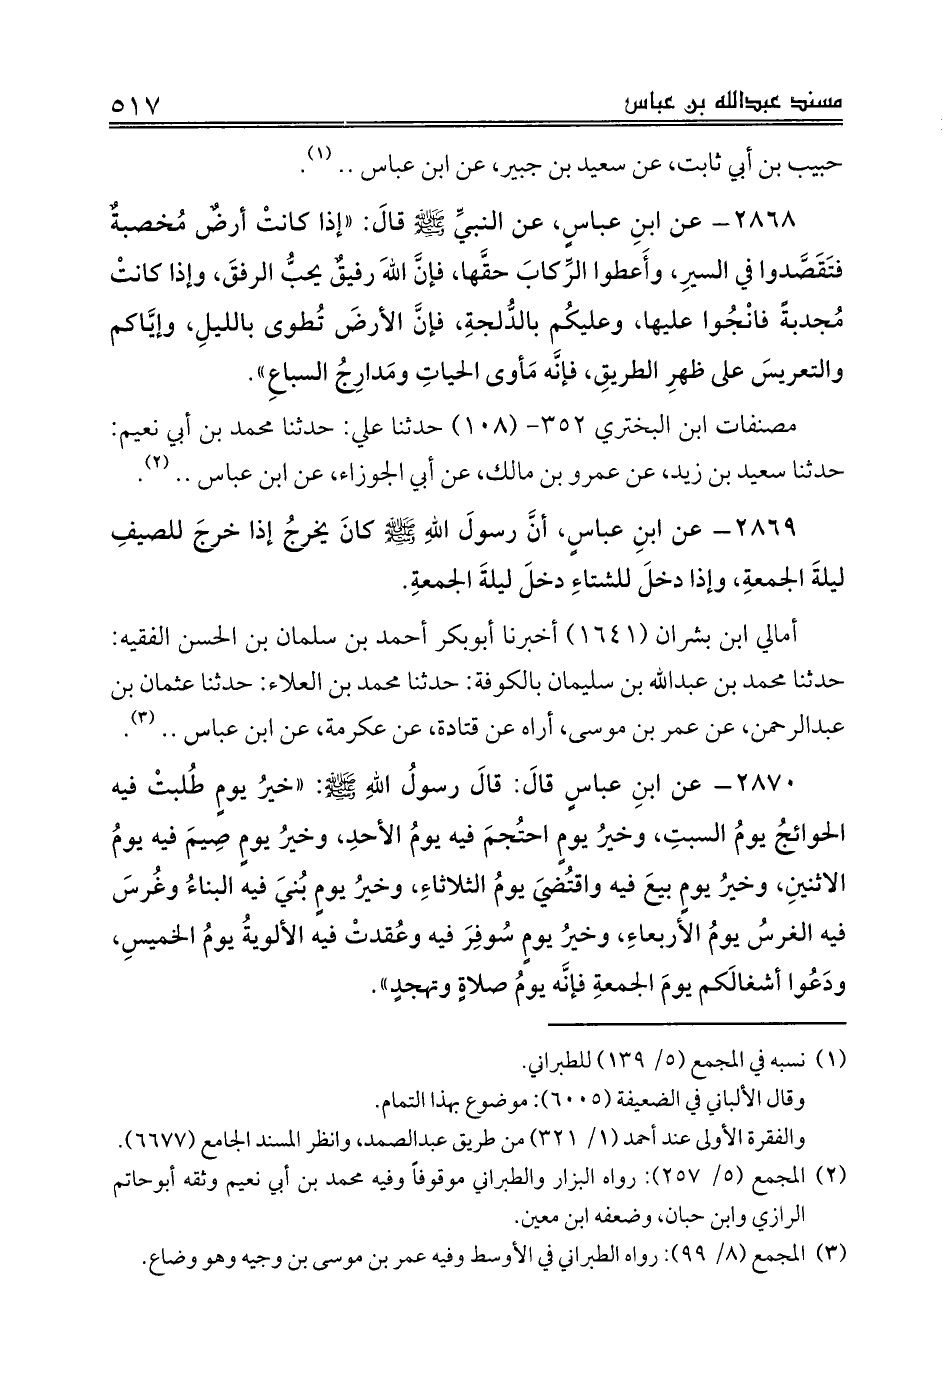 مسند عبدالله بن عباس ٥١٧
حبيب بن أبي ثابت، عن سعيد بن جبير، عن ابن عباس .. (١).
٢٨٦٨- عن ابنِ عباسٍ، عن النبيِّ ﷺ قالَ: «إذا كانتْ أرضٌ مُخصبةٌ
فتَقَصَّدوا في السيرِ، وأَعطوا الرِّكابَ حقَّها، فإنَّ اللهَ رفيقٌ يحبُّ الرفقَ، وإذا كانتْ
مُجدبةً فانْجُوا عليها، وعليكُم بالدُّلجةِ، فإنَّ الأرضَ تُطوى بالليلِ، وإيَّاكم
والتعريسَ على ظهرِ الطريقِ، فإنَّه مَأوى الحياتِ ومَدارِجُ السباعِ».
مصنفات ابن البختري ٣٥٢- (١٠٨) حدثنا علي: حدثنا محمد بن أبي نعيم:
حدثنا سعيد بن زيد، عن عمرو بن مالك، عن أبي الجوزاء، عن ابن عباس .. (٢).
٢٨٦٩- عن ابنِ عباسٍ، أنَّ رسولَ اللهِ ﷺ كانَ يخرجُ إذا خرجَ للصيفِ
ليلةَ الجمعةِ، وإذا دخلَ للشتاءِ دخلَ ليلةَ الجمعةِ.
أمالي ابن بشران (١٦٤١) أخبرنا أبوبكر أحمد بن سلمان بن الحسن الفقيه:
حدثنا محمد بن عبدالله بن سليمان بالكوفة: حدثنا محمد بن العلاء: حدثنا عثمان بن
عبدالرحمن، عن عمر بن موسى، أراه عن قتادة، عن عكرمة، عن ابن عباس .. (٣).
٢٨٧٠- عن ابنِ عباسٍ قالَ: قالَ رسولُ اللهِ ﷺ: «خيرُ يومٍ طُلبتْ فيه
الحوائجُ يومُ السبتِ، وخيرُ يومٍ احتُجمَ فيه يومُ الأحدِ، وخيرُ يومٍ صِيمَ فيه يومُ
الاثنينِ، وخيرُ يومٍ بيعَ فيه واقتُضيَ يومُ الثلاثاءِ، وخيرُ يومٍ بُنيَ فيه البناءُ وغُرسَ
فيه الغرسُ يومُ الأربعاءِ، وخيرُ يومٍ سُوفِرَ فيه وعُقدتْ فيه الألويةُ يومُ الخميسِ،
ودَعُوا أشغالَكم يومَ الجمعةِ فإنَّه يومُ صلاةٍ وتهجدٍ».
(١) نسبه في المجمع (٥/ ١٣٩) للطبراني.
وقال الألباني في الضعيفة (٦٠٠٥): موضوع بهذا التمام.
والفقرة الأولى عند أحمد (١/ ٣٢١) من طريق عبدالصمد، وانظر المسند الجامع (٦٦٧٧).
(٢) المجمع (٥/ ٢٥٧): رواه البزار والطبراني موقوفاً وفيه محمد بن أبي نعيم وثقه أبوحاتم
الرازي وابن حبان، وضعفه ابن معين.
(٣) المجمع (٨/ ٩٩): رواه الطبراني في الأوسط وفيه عمر بن موسى بن وجيه وهو وضاع.